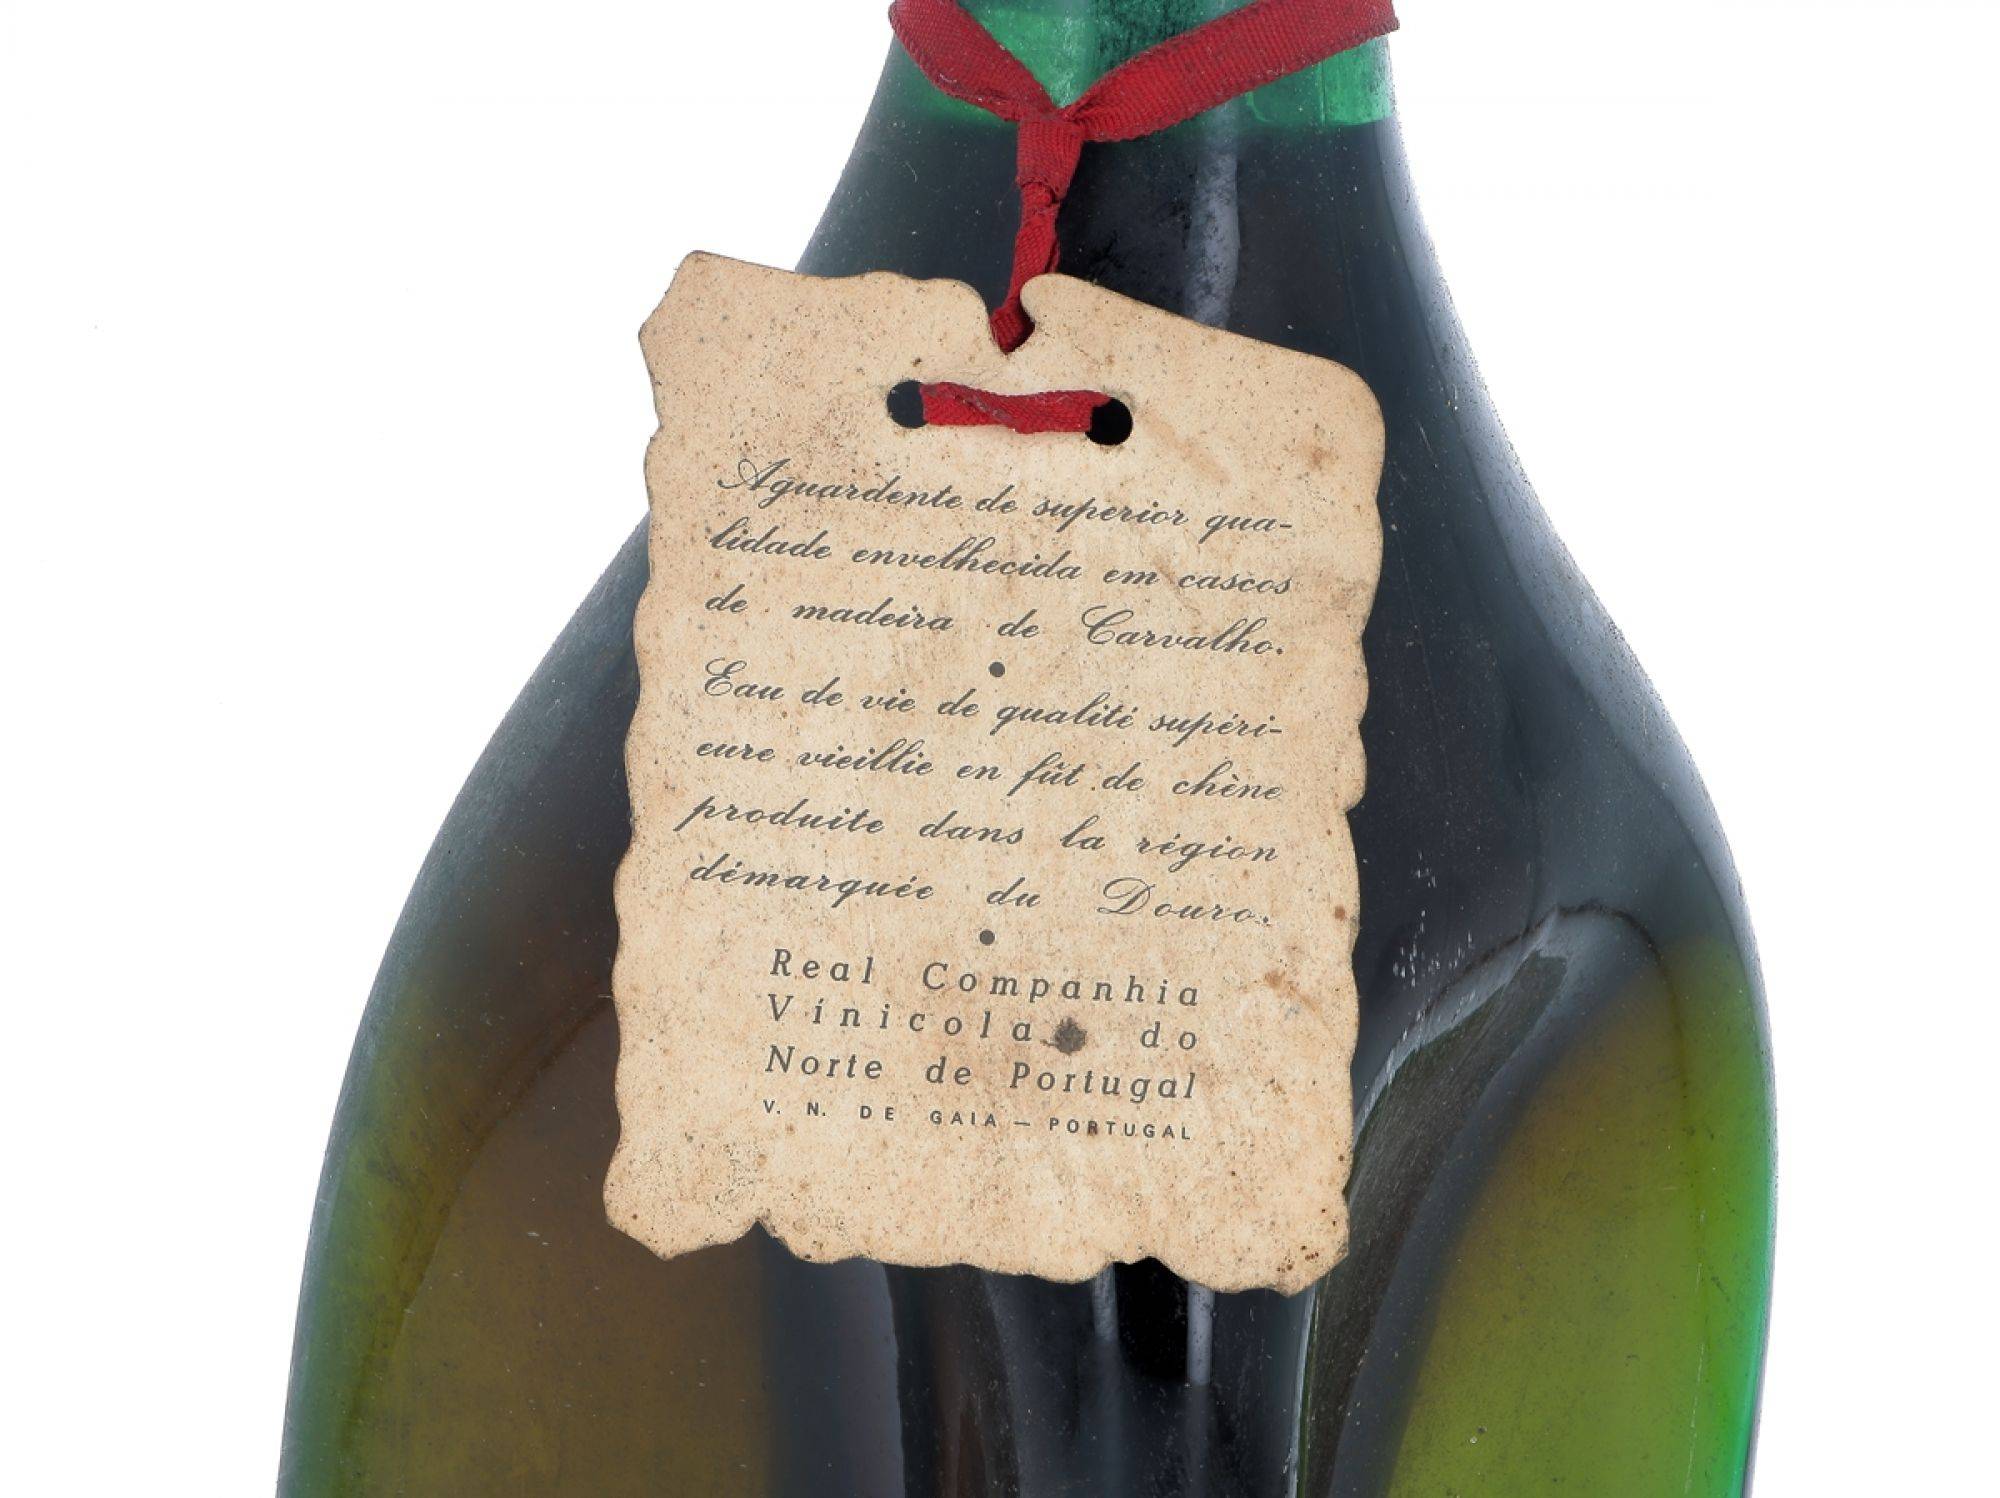 Aguardente de superior qua-
lidade envelhecida em cascos
de madeira de Carvalho.
Eau de vie de qualité supéri-
eure vieillie en fût de chène
produite dans la région
démarquée du Douro.
Real Companhia
Vínicola do
Norte de Portugal
V. N. DE GAIA — PORTUGAL